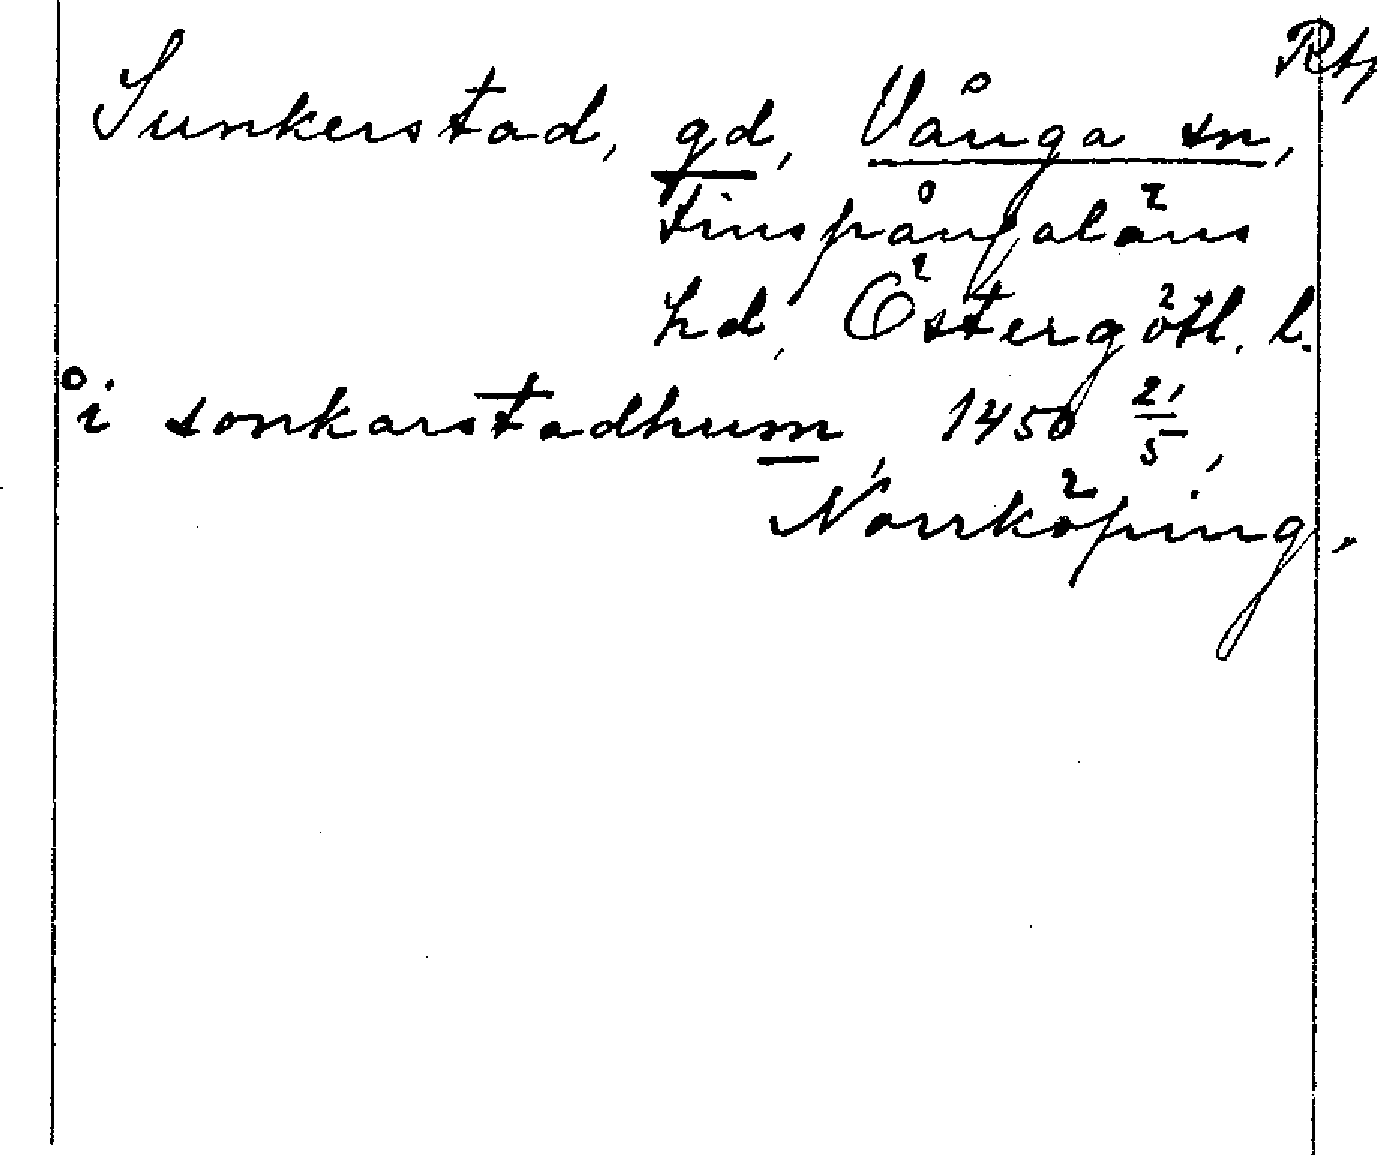 Rty
Sunkerstad, gd, Vånga sn,
Finspångaläns
hd, Östergötl. l.
i sonkarstadhum, 1450 21/5,
Norrköping.